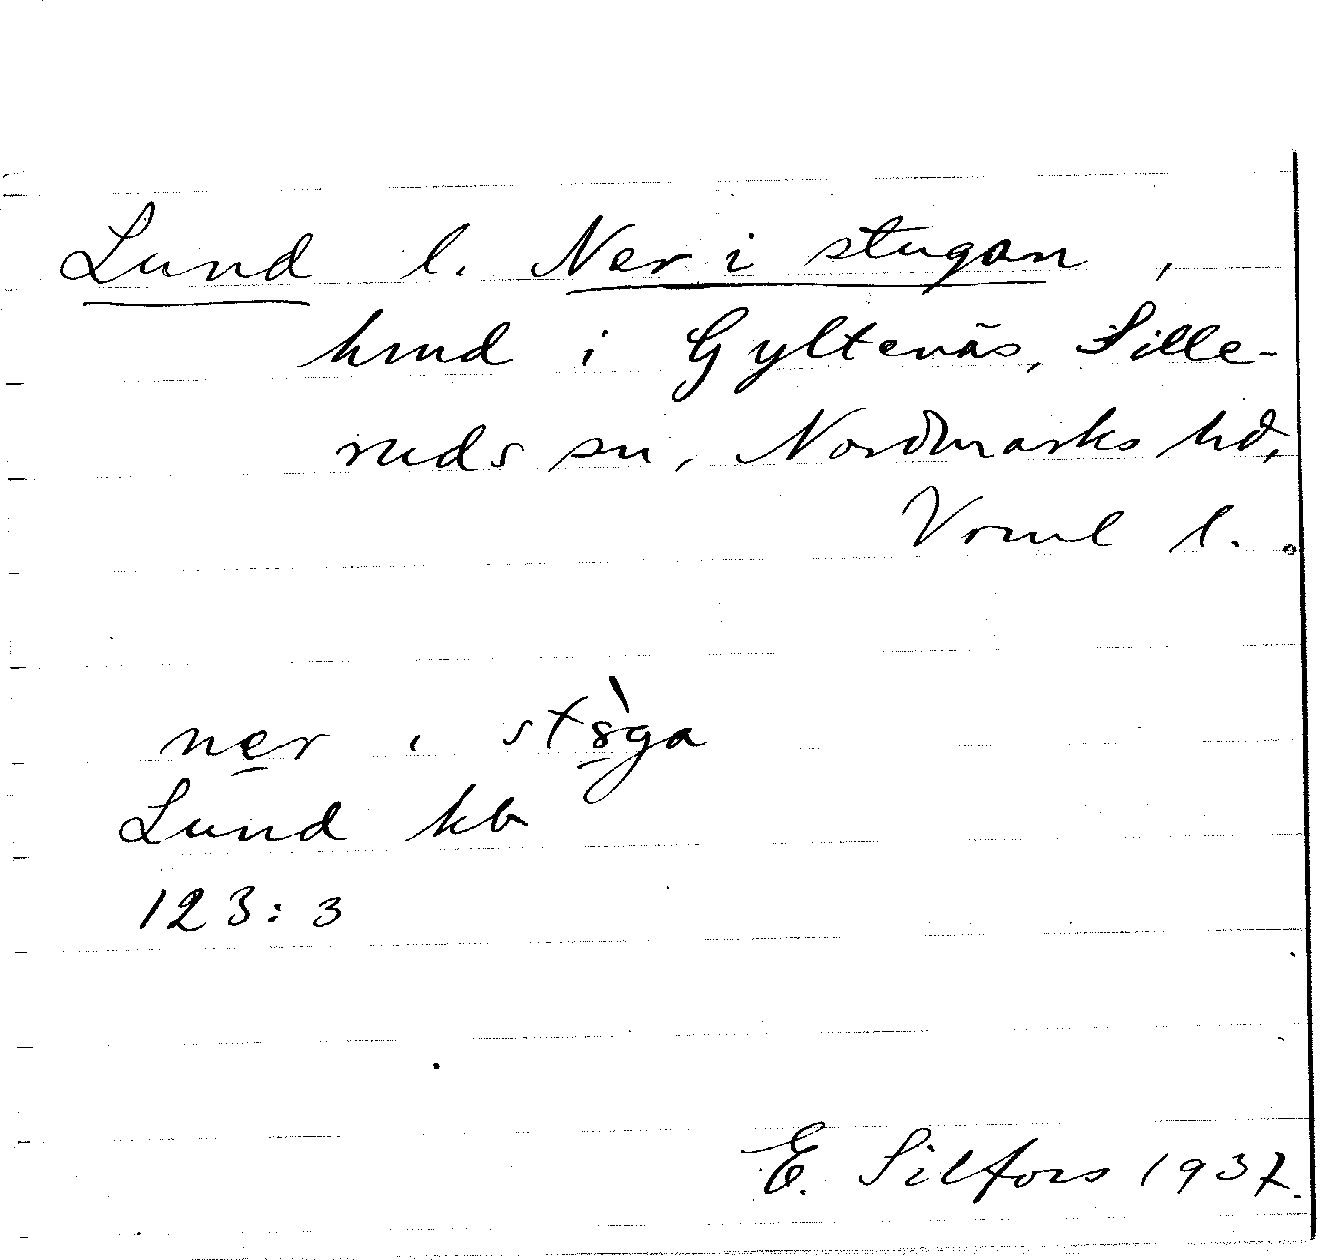 Lund l. Ner i stugan,
hmd i Gyltenäs, Sille-
ruds sn, Nordmarks hd,
Vrml l.
ner i sts̀ga
Lund kb
123:3
E. Silfors 1937.